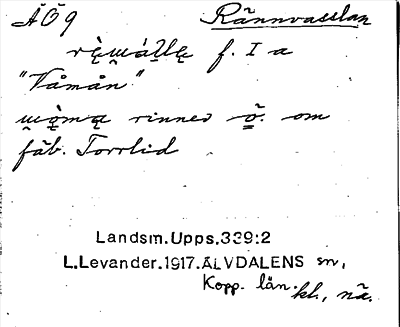 ÄÖ9 Rännvasslan
f. I a
"Våmån"
rinner om
fäb. Torrlid
Landsm.Upps.339:2
L.Levander.1917.ÄLVDALENS sn,
Kopp. län.
kl., nä.